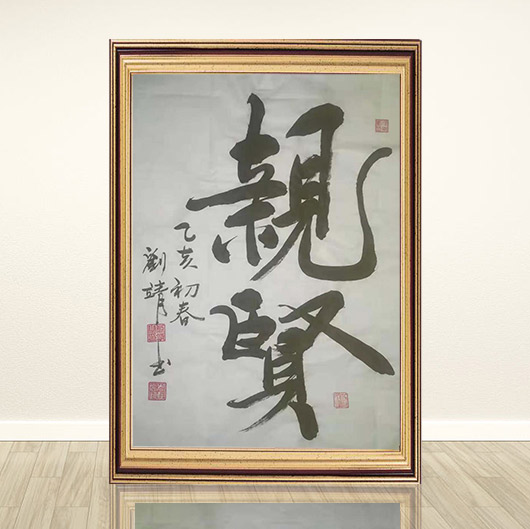 親賢
乙亥初春
劉靖書